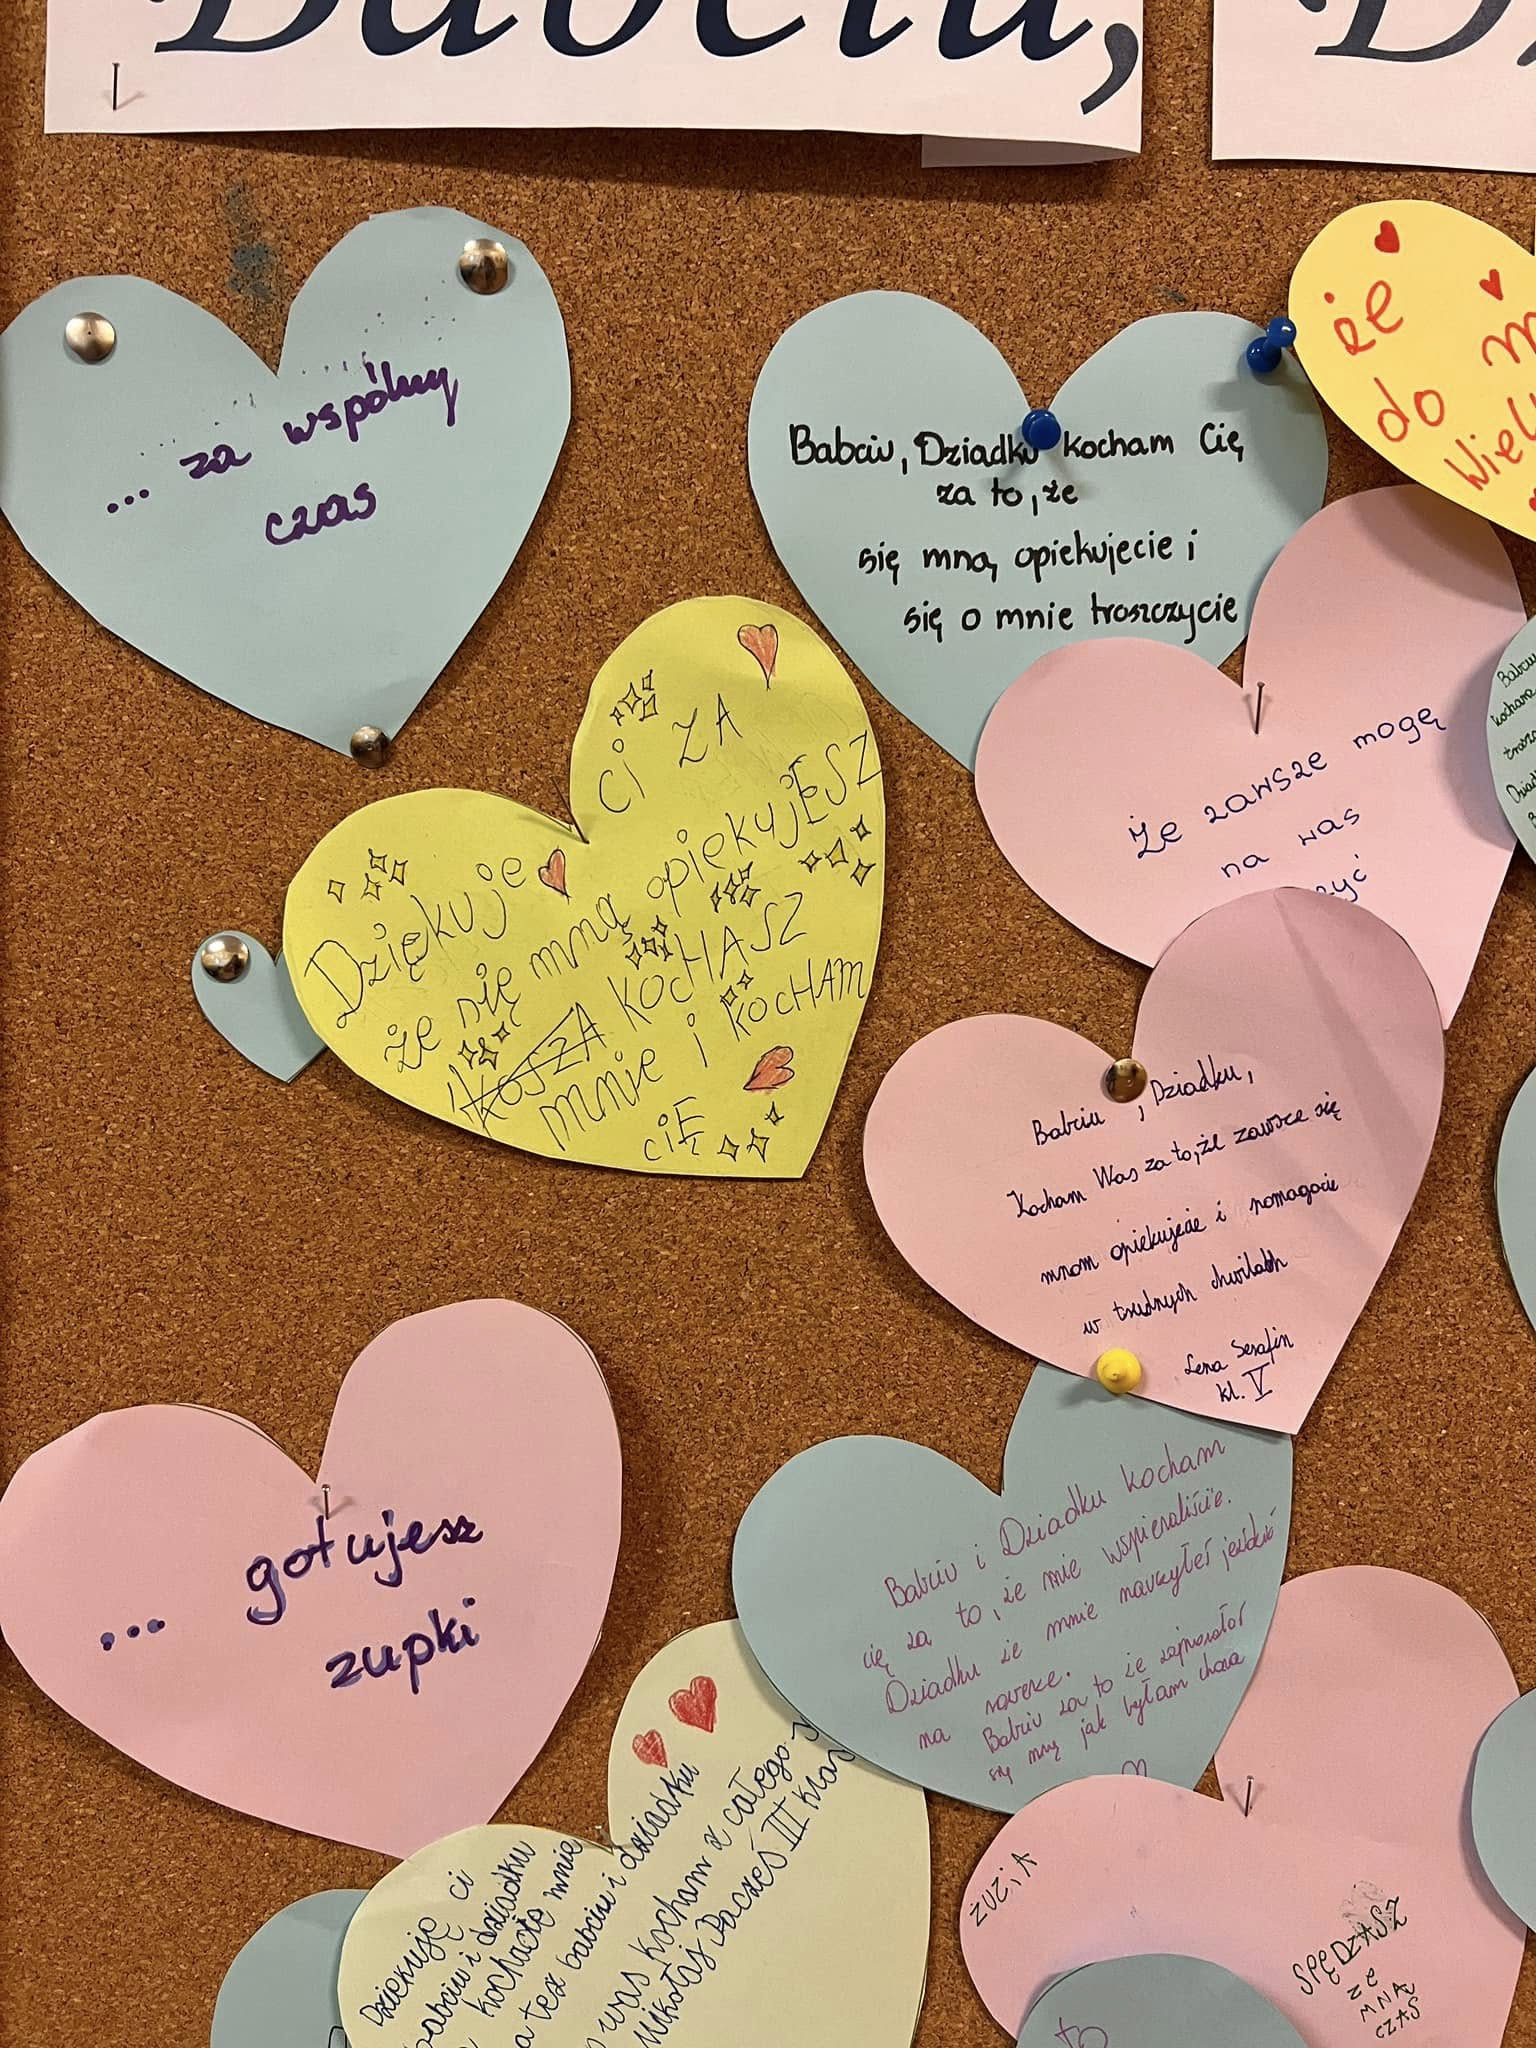 Babciu,
... za wspólny
czas
Babciu, Dziadku kocham Cię
za to, że
się mną opiekujecie i
się o mnie troszczycie
że
do
Dziękuje ci ZA
że się mną opiekujESZ
KOCHASZ
mnie i KOCHAM
ciĘ
Że zawsze mogę
na was
Babciu, Dziadku,
Kocham Was za to, że zawsze się
mnom opiekujecie i pomagacie
w trudnych chwilach
Lena Serafin
kl. V
... gotujesz
zupki
Babciu i Dziadku kocham
cię za to, że mnie wspieraliście.
Dziadku że mnie nauczyłeś jeździć
na rowerze.
Babciu za to że zajmowałaś
się mną jak byłam chora
Dziekuję ci
babciu i dziadku
kochacie mnie
a też babciu i dziadku
was kocham z całego
Mikołaj Pacześ III
ZUZIA
SPĘDZASZ
ZE
MNĄ
CZAS